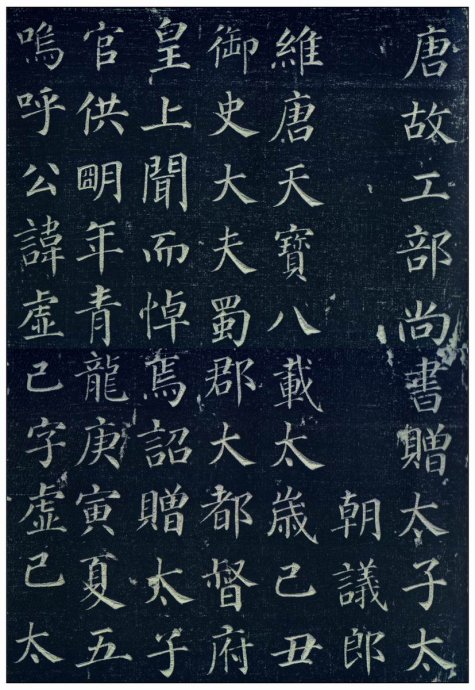 唐故工部尚書贈太子太
朝議郎
維唐天寶八載太歲己丑
御史大夫蜀郡大都督府
皇上聞而悼焉詔贈太子
官供明年青龍庚寅夏五
嗚呼公諱虛己字虛己太